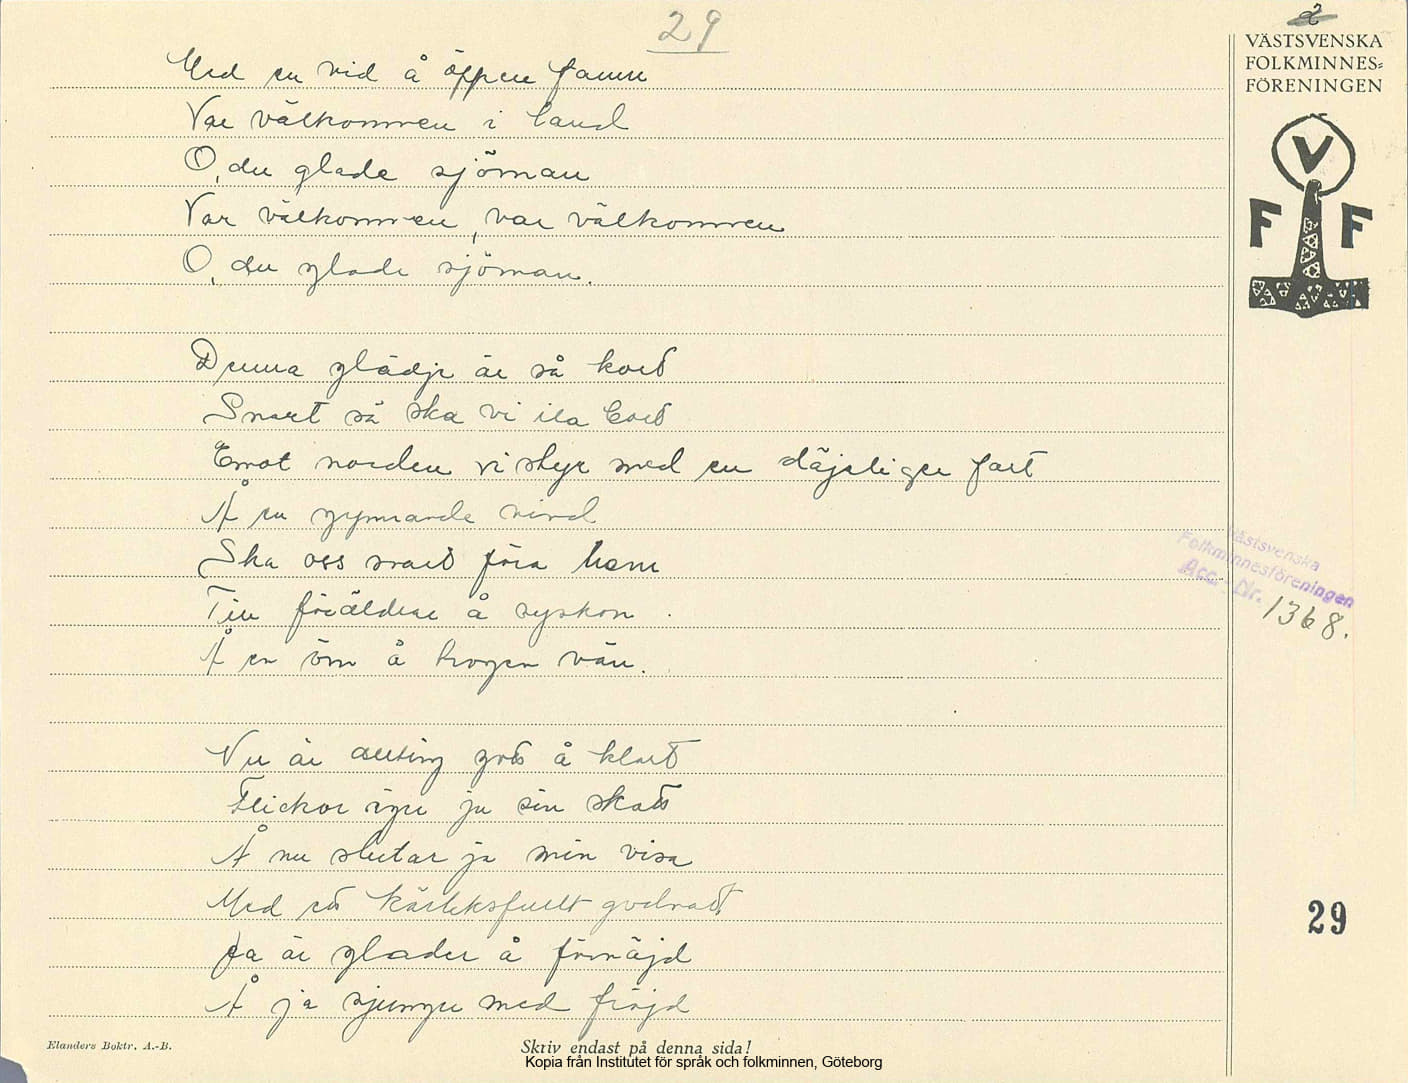 29
2
VÄSTSVENSKA
FOLKMINNES=
FÖRENINGEN
V
F F
Med en vid å öppen famn
Var välkommen i land
O, du glade sjöman
Var välkommen, var välkommen
O, du glade sjöman.
Denna glädje är så kort
Snart så ska vi ila bort
Emot norden vi styr med en däjeliger fart
Å en gynnande vind
Ska oss snart föra hem
Till föräldrar å syskon
Å en öm å trogen vän.
Nu är allting gott å klart
Flickor äger ju sin skatt
Å nu slutar ja min visa
Med ett kärleksfullt godnatt
Ja är glader å förnäjd
Å ja sjunger med fröjd
Västsvenska
Folkminnesföreningen
Acc.-Nr. 1368.
29
Elanders Boktr. A.-B.
Skriv endast på denna sida!
Kopia från Institutet för språk och folkminnen, Göteborg